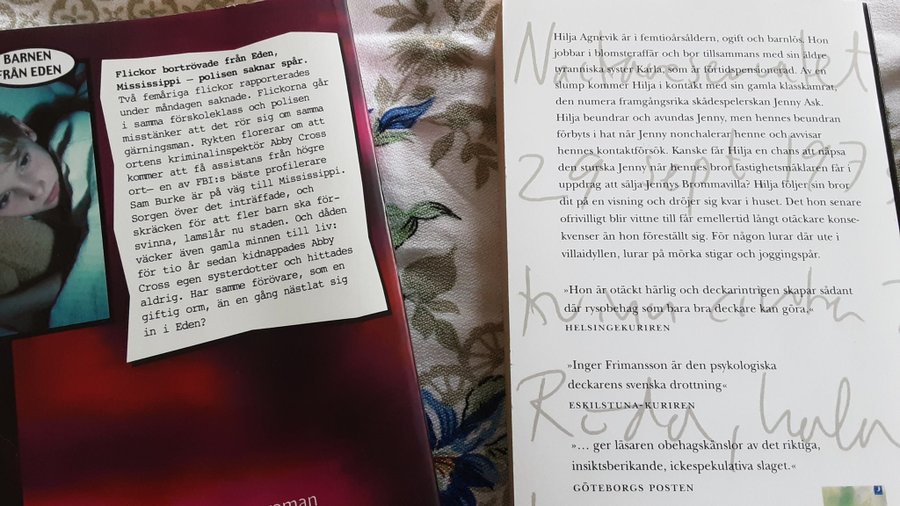 BARNEN
FRÅN EDEN
Flickor bortrövade från Eden,
Mississippi — polisen saknar spår.
Två femåriga flickor rapporterades
under måndagen saknade. Flickorna går
i samma förskoleklass och polisen
misstänker att det rör sig om samma
gärningsman. Rykten florerar om att
ortens kriminalinspektör Abby Cross
kommer att få assistans från högre
ort— en av FBI:s bäste profilerare
Sam Burke är på väg till Mississippi.
Sorgen över det inträffade, och
skräcken för att fler barn ska för-
svinna, lamslår nu staden. Och dåden
väcker även gamla minnen till liv:
för tio år sedan kidnappades Abby
Cross egen systerdotter och hittades
aldrig. Har samme förövare, som en
giftig orm, än en gång nästlat sig
in i Eden?
roman
Hilja Agnevik är i femtioårsåldern, ogift och barnlös. Hon
jobbar i blomsteraffär och bor tillsammans med sin äldre
tyranniska syster Karla, som är förtidspensionerad. Av en
slump kommer Hilja i kontakt med sin gamla klasskamrat,
den numera framgångsrika skådespelerskan Jenny Ask.
Hilja beundrar och avundas Jenny, men hennes beundran
förbyts i hat när Jenny nonchalerar henne och avvisar
hennes kontaktförsök. Kanske får Hilja en chans att näpsa
den struliga Jenny när hennes bror fastighetsmäklaren får i
uppdrag att sälja Jennys Brommavilla? Hilja följer sin bror
dit på en visning och dröjer sig kvar i huset. Det hon senare
ofrivilligt blir vittne till får emellertid långt otäckare konse-
kvenser än hon föreställt sig. För någon lurar där ute i
villaidyllen, lurar på mörka stigar och joggingspår.
»Hon är otäckt härlig och deckarintrigen skapar sådant
där rysobehag som bara bra deckare kan göra.«
HELSINGEKURIREN
»Inger Frimansson är den psykologiska
deckarens svenska drottning«
ESKILSTUNA-KURIREN
»... ger läsaren obehagskänslor av det riktiga,
insiktsberikande, ickespekulativa slaget.«
GÖTEBORGS POSTEN
29 sept 1997